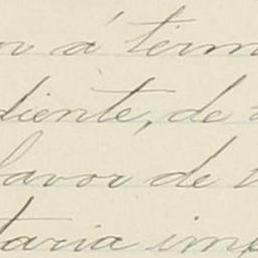 or á térm
diente, de
favor de
taria im